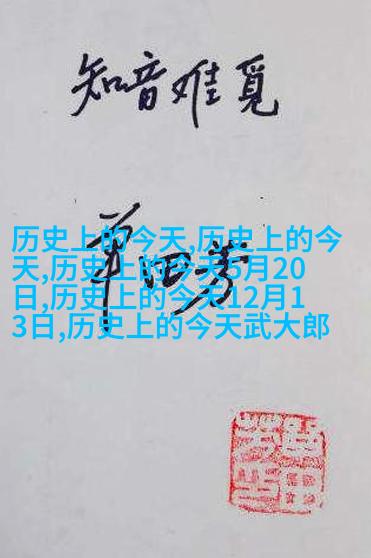 知音难觅
单田芳
历史上的今天,历史上的今
天,历史上的今天5月20
日,历史上的今天12月1
3日,历史上的今天武大郎